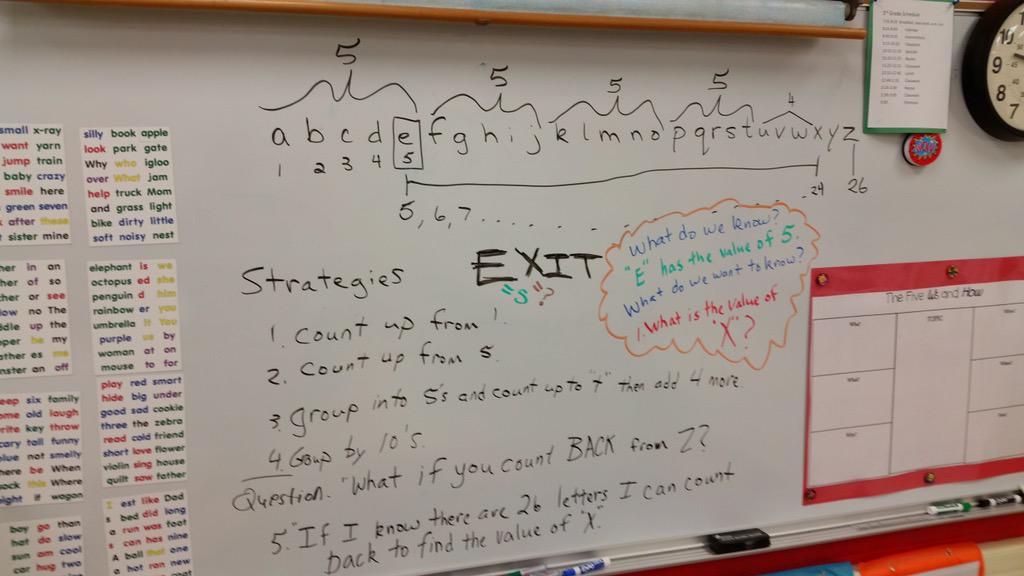 5 5 5 5 4
a b c d e f g h i j k l m n o p q r s t u v w x y z
1 2 3 4 5 24 26
5, 6, 7 . . . .
EXIT
"5" ?
What do we know?
"E" has the value of 5.
What do we want to know?
1. What is the value of
"X"?
Strategies
1. Count up from 1.
2. Count up from 5.
3. group into 5's and count up to "t" then add 4 more.
4. Goup by 10's.
Question. "What if you count BACK from Z?
5. "If I know there are 26 letters I can count
back to find the value of "X".
small x-ray
want yarn
jump train
baby crazy
smile here
green seven
after these
sister mine
silly book apple
look park gate
Why who igloo
over What jam
help truck Mom
and grass light
bike dirty little
soft noisy nest
in an
of so
or see
now no The
up the
he my
es me
an off
elephant is we
octopus ed she
penguin d him
rainbow er you
umbrella it You
purple us by
woman at on
mouse to for
six family
old laugh
key throw
tall funny
not smelly
be When
this Where
if wagon
play red smart
hide big under
good sad cookie
three the zebra
read cold friend
short love flower
violin sing house
quilt saw father
boy go than
hat do slow
sun am cool
car hug two
I est like Dad
s bed did long
a run was foot
s can has nine
A ball that one
a hat ran new
The Five Ws and How
TOPIC
10
9
8
7